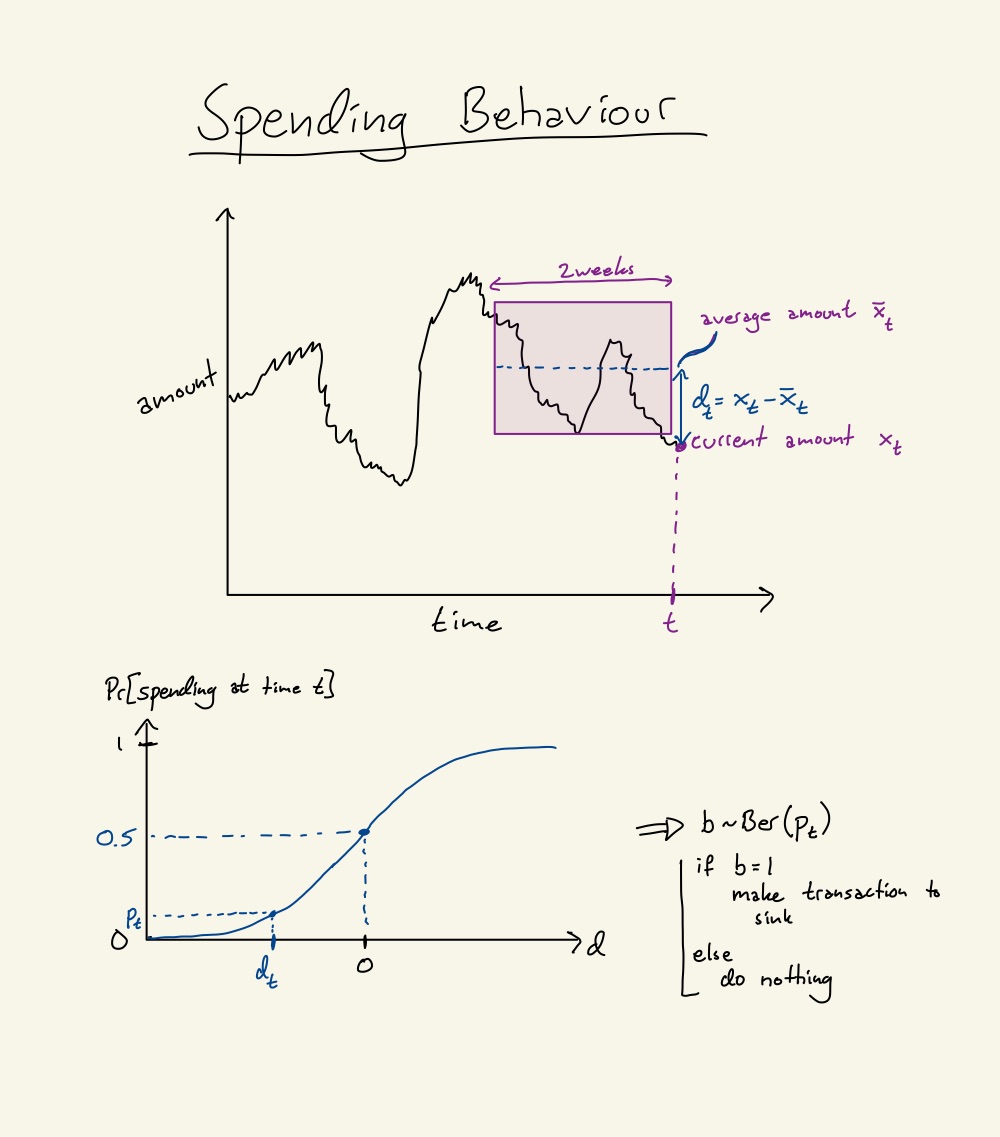 Spending Behaviour
2weeks
average amount x̄_t
amount
d_t = x_t − x̄_t
current amount x_t
time
t
Pr[spending at time t]
1
0.5
p_t
0
d_t
0
d
⇒ b ~ Ber(p_t)
if b=1
make transaction to
sink
else
do nothing